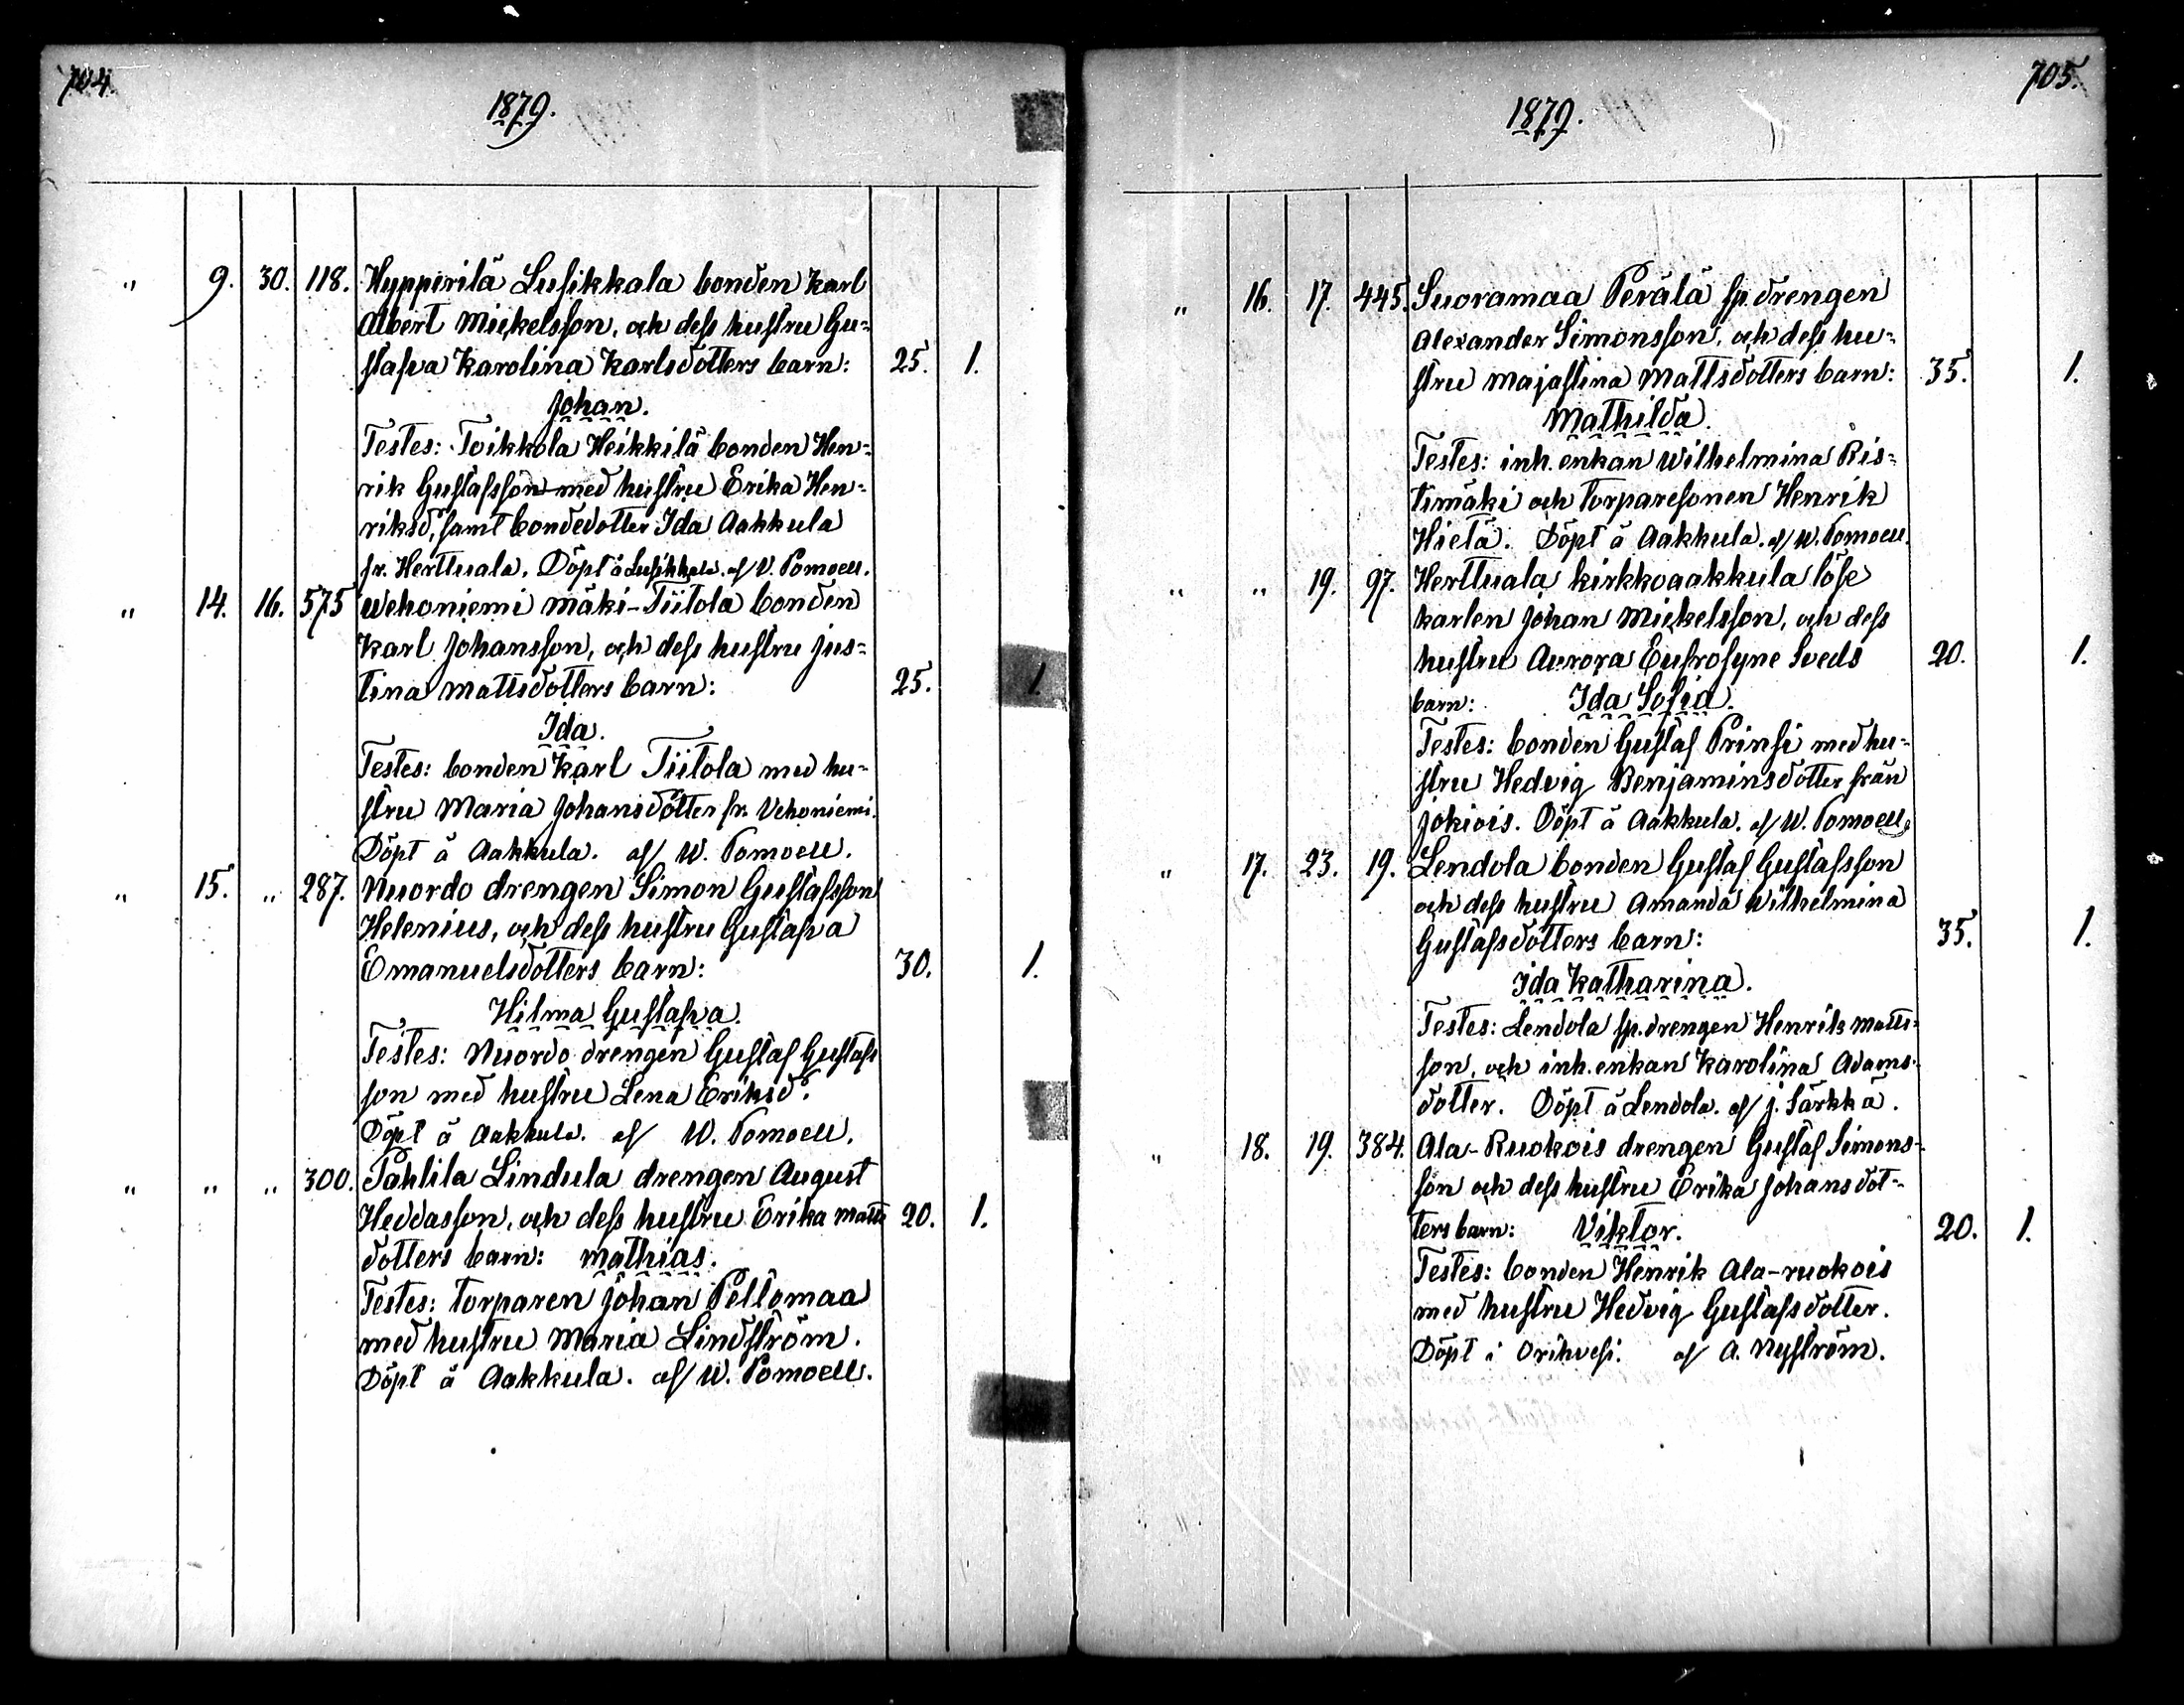 704.
1879.
" 9. 30. 118. Hypperilä Lusikkala bonden Karl
Albert Mickelsson, och dess hustru Gu=
stafva Karolina Karlsdotters barn: 25. 1.
Johan.
Testes: Toikkola Heikkilä bonden Hen=
rik Gustafsson med hustru Erika Hen=
riksd, samt bondedotter Ida Aakkula
fr. Herttuala. Döpt å Lusikkala. af V. Pomoell.
" 14. 16. 575 Wehoniemi Mäki-Tiitola bonden
Karl Johansson, och dess hustru Jus=
tina Mattsdotters barn: 25. 1
Ida.
Testes: bonden Karl Tiitola med hu=
stru Maria Johansdotter fr. Vehoniemi.
Döpt å Aakkula. af W. Pomoell.
" 15. " 287. Nuordo drengen Simon Gustafsson
Helenius, och dess hustru Gustafva
Emanuelsdotters barn: 30. 1.
Hilma Gustafva.
Testes: Nuordo drengen Gustaf Gustafs
son med hustru Lena Eriksd.
Döpt å Aakkula. af W. Pomoell.
" " " 300. Pahlila Lindula drengen August
Heddasson, och dess hustru Erika Matts 20. 1.
dotters barn: Mathias.
Testes: torparen Johan Peltomaa
med hustru Maria Lindström.
Döpt å Aakkula. af W. Pomoell.
705.
1879.
" 16. 17. 445. Suoramaa Perälä sp. drengen
Alexander Simonsson, och dess hu=
stru Majastina Mattsdotters barn: 35. 1.
Mathilda.
Testes: inh. enkan Wilhelmina Ris=
timäki och torparesonen Henrik
Hietä. Döpt å Aakkula. af W. Pomoell.
" " 19. 97. Herttuala Kirkkoaakkula löse
karlen Johan Mickelsson, och dess
hustru Aurora Eufrosyne Sveds 20. 1.
barn: Ida Sofia.
Testes: bonden Gustaf Prinsi med hu=
stru Hedvig Benjaminsdotter från
Jokiois. Döpt å Aakkula. af W. Pomoell.
" 17. 23. 19. Lendola bonden Gustaf Gustafsson
och dess hustru Amanda Wilhelmina
Gustafsdotters barn: 35. 1.
Ida Katharina.
Testes: Lendola sp. drengen Henrik Matts=
son, och inh. enkan Karolina Adams=
dotter. Döpt å Lendola. af J. Särkkä.
" 18. 19. 384. Ala-Ruokois drengen Gustaf Simons=
son och dess hustru Erika Johansdot=
ters barn: Viktor. 20. 1.
Testes: bonden Henrik Ala-ruokois
med hustru Hedvig Gustafsdotter.
Döpt i Orihvesi. af A. Nyström.